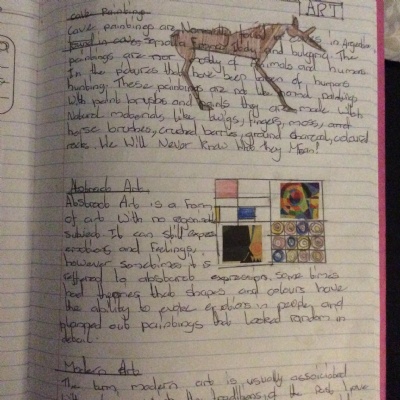 ART
Cave Paintings
Cave paintings are Normally found in Argentina
found in caves Somalia France Italy and bulgaria. The
paintings are mostly of animals and humans
In the pictures that have been taken of humans
hunting. These paintings are not like normal paintings
With paint brushes and paints they are made with
Natural materials like twigs, fingers, moss, and
horse brushes, crushed berries, ground charcoal, coloured
rocks. We Will Never know what they Mean!
Abstract Art
Abstract Art is a Form
of art With no
subject. It can still express
emotions and feelings,
however sometimes it is
reffered to abstract expression, Some times
had that shapes and colours have
the ability to evoke in people and
out paintings that looked Random in
detail.
Modern Art
The term modern art is usually associated
the traditions of the Past have